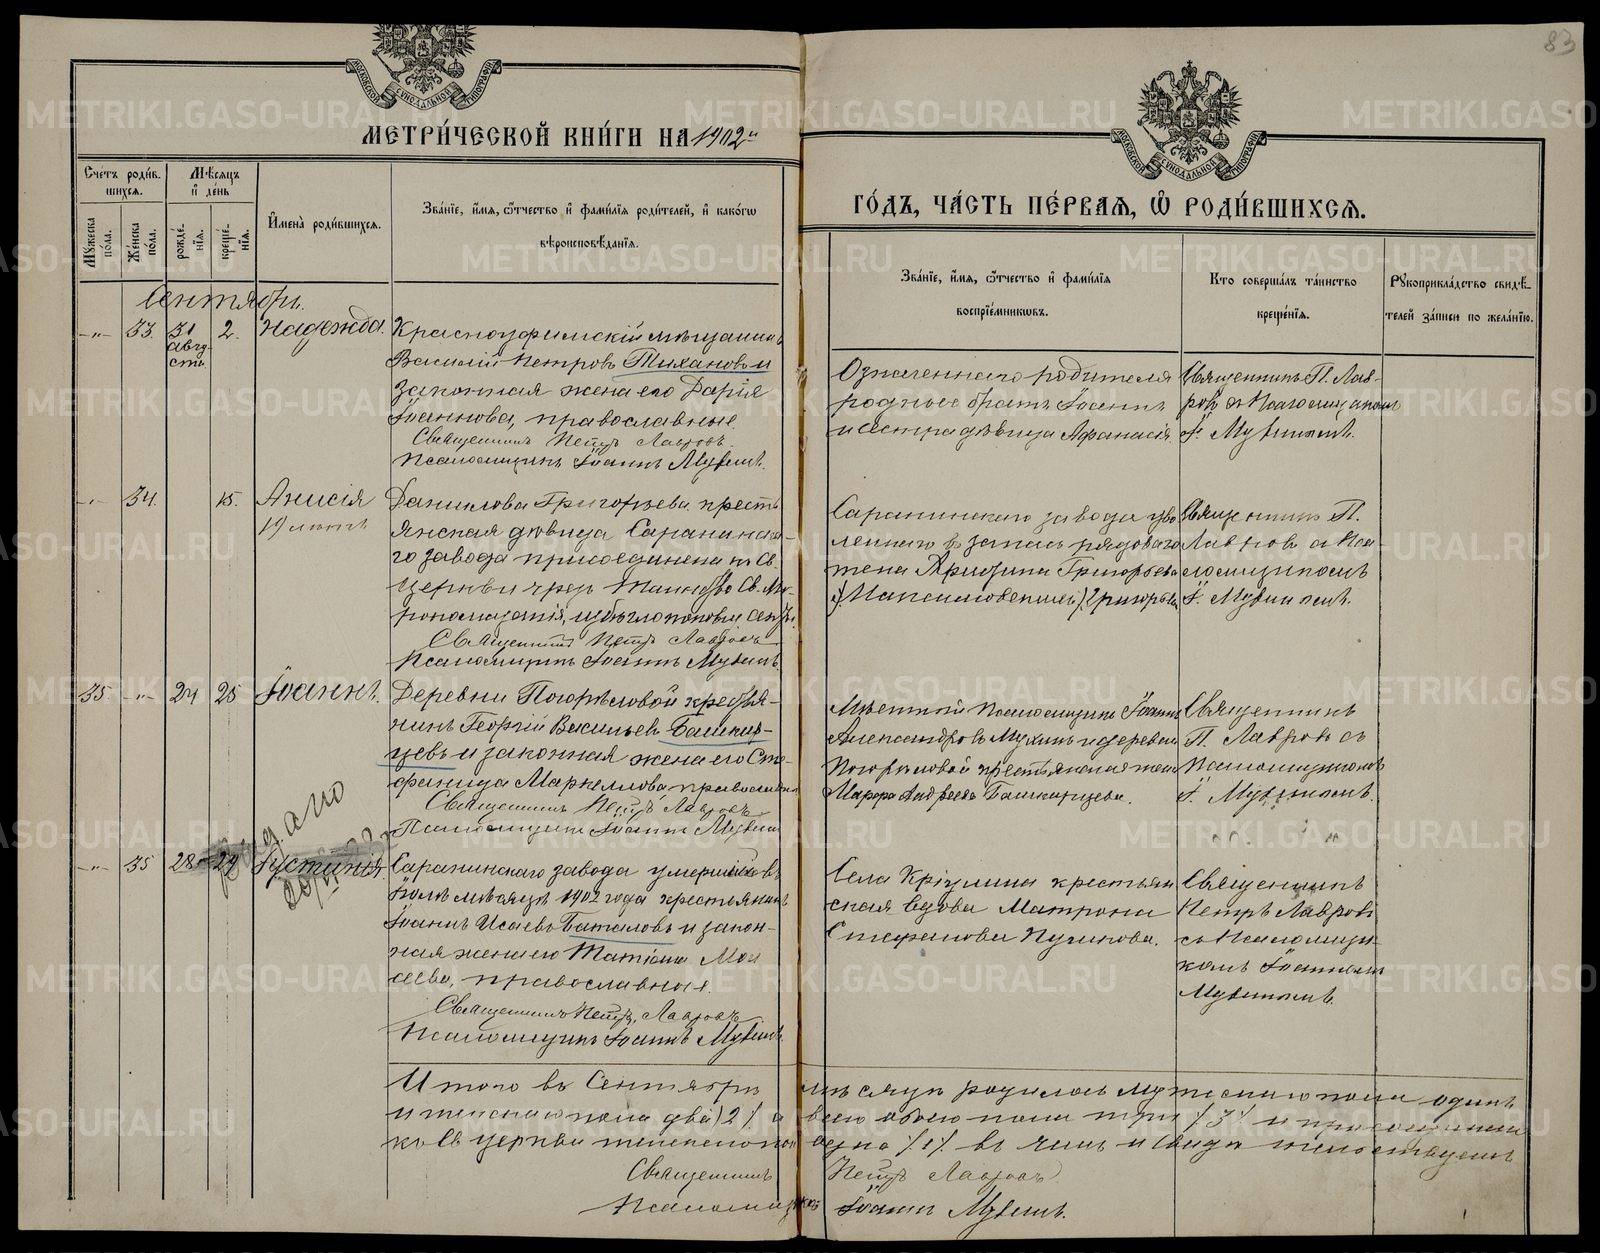 83
МЕТРИ́ЧЕСКОЙ КНИ́ГИ НА 1902й
ГО́ДЪ, ЧА́СТЬ ПЕ́РВАЯ, Ѽ РОДИ́ВШИХСЯ.
Сче́тъ роди́вшихся.
Мѣ́сяцъ и де́нь
Му́жеска по́ла.
Же́нска по́ла.
рожде́нїя.
креще́нїя.
Имена̀ роди́вшихся.
Зва́нїе, и́мя, ѻ́тчество и фами́лїя роди́телей, и како́гѡ
вѣроисповѣ́данїя.
Зва́нїе, и́мя, ѻ́тчество и фами́лїя
воспрїе́мниковъ.
Кто соверша́лъ та́инство
креще́нїя.
Рукоприкла́дство свидѣ́-
телей за́писи по жела́нїю.
Сентябрь.
-"- 33. 31 августа 2. Надежда.
Красноуфимскій мѣщанинъ
Василій Петровъ Тихановъ и
законная жена его Дарія
Іоаннова, православные.
Священникъ Петръ Лавровъ.
Псаломщикъ Іоаннъ
Означеннаго родителя
родные братъ Іоаннъ
и сестра дѣвица Афанасія.
Священникъ П. Лав-
ровъ съ Псаломщикомъ
І.
-"- 34. 15. Анисія
19 лѣтъ
Даниилова Григорьева кресть
янская дѣвица Саранинска-
го завода присоединена къ Св.
Церкви чрезъ Таинство Св. Му-
ропомазанія, изъ бѣглопоповщ. секты.
Священникъ Петръ Лавровъ
Псаломщикъ Іоаннъ
Саранинскаго завода уво
леннаго въ запасъ рядоваго
жена Григорьева
Священникъ П.
Лавровъ съ Пса-
ломщикомъ
І.
35. -"- 24 25 Іоаннъ.
Деревни Погорѣловой крестья-
нинъ Георгій Васильевъ Башкир-
цевъ и законная жена его Сте-
фанида Маркеллова православные
Священникъ Петръ Лавровъ
Псаломщикъ Іоаннъ
Мѣстный Псаломщикъ Іоаннъ
Александровъ и деревни
Погорѣловой крестьянская жена
Андреева Башкирцева.
Священникъ
П. Лавровъ съ
Псаломщикомъ
І.
Выдано
-"- 35 28 29 Іустинія.
Саранинскаго завода умершій въ
Іюлѣ мѣсяцѣ 1902 года крестьянинъ
Іоаннъ Исаевъ Баталовъ и закон-
ная жена его Татіана Мои
сеева, православные.
Священникъ Петръ Лавровъ
Псаломщикъ Іоаннъ
Села Кріулина крестьян
ская вдова Матрона
Стефанова
Священникъ
Петръ Лавровъ
съ Псаломщи-
комъ Іоанномъ
Итого въ Сентябрѣ мѣсяцѣ родилось мужескаго пола одинъ
и женскаго пола два /2/ а всего обоего пола три /3/ и присоединен
къ Св церкви женскаго пол одна /1/. въ чемъ и свидѣтельствуемъ
Священникъ Петръ Лавровъ.
Псаломщикъ Іоаннъ
METRIKI.GASO-URAL.RU